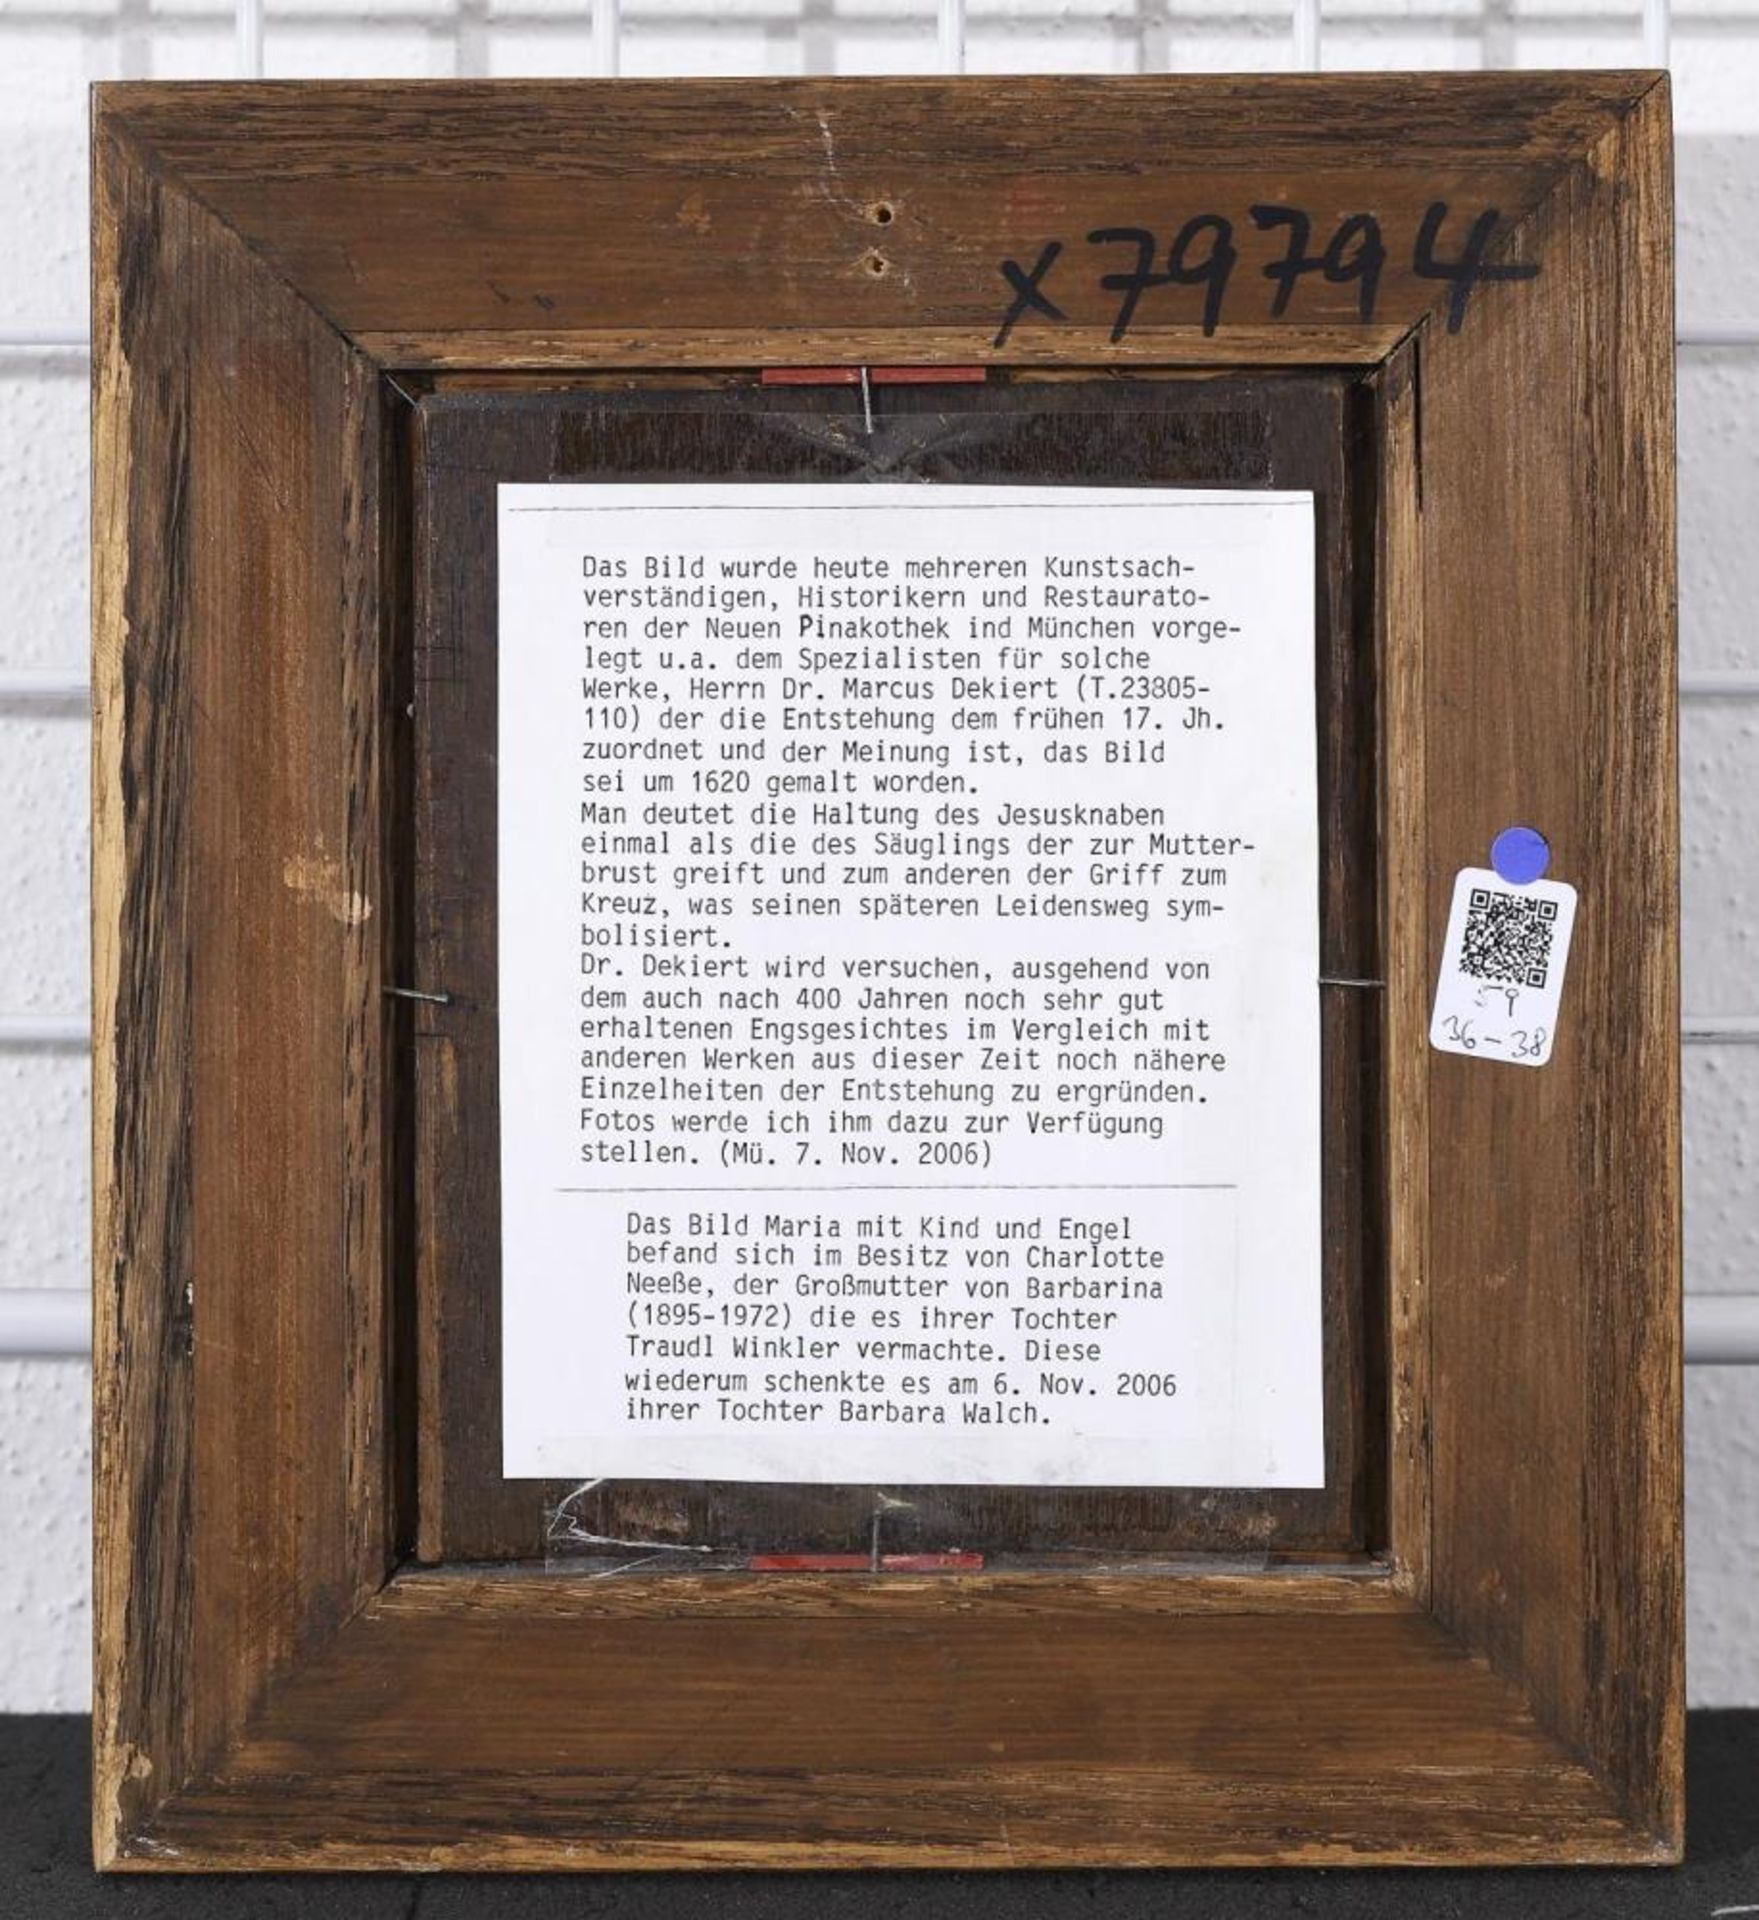 x79794
Das Bild wurde heute mehreren Kunstsach-
verständigen, Historikern und Restaurato-
ren der Neuen Pinakothek ind München vorge-
legt u.a. dem Spezialisten für solche
Werke, Herrn Dr. Marcus Dekiert (T.23805-
110) der die Entstehung dem frühen 17. Jh.
zuordnet und der Meinung ist, das Bild
sei um 1620 gemalt worden.
Man deutet die Haltung des Jesusknaben
einmal als die des Säuglings der zur Mutter-
brust greift und zum anderen der Griff zum
Kreuz, was seinen späteren Leidensweg sym-
bolisiert.
Dr. Dekiert wird versuchen, ausgehend von
dem auch nach 400 Jahren noch sehr gut
erhaltenen Engsgesichtes im Vergleich mit
anderen Werken aus dieser Zeit noch nähere
Einzelheiten der Entstehung zu ergründen.
Fotos werde ich ihm dazu zur Verfügung
stellen. (Mü. 7. Nov. 2006)
Das Bild Maria mit Kind und Engel
befand sich im Besitz von Charlotte
Neeße, der Großmutter von Barbarina
(1895-1972) die es ihrer Tochter
Traudl Winkler vermachte. Diese
wiederum schenkte es am 6. Nov. 2006
ihrer Tochter Barbara Walch.
36-38